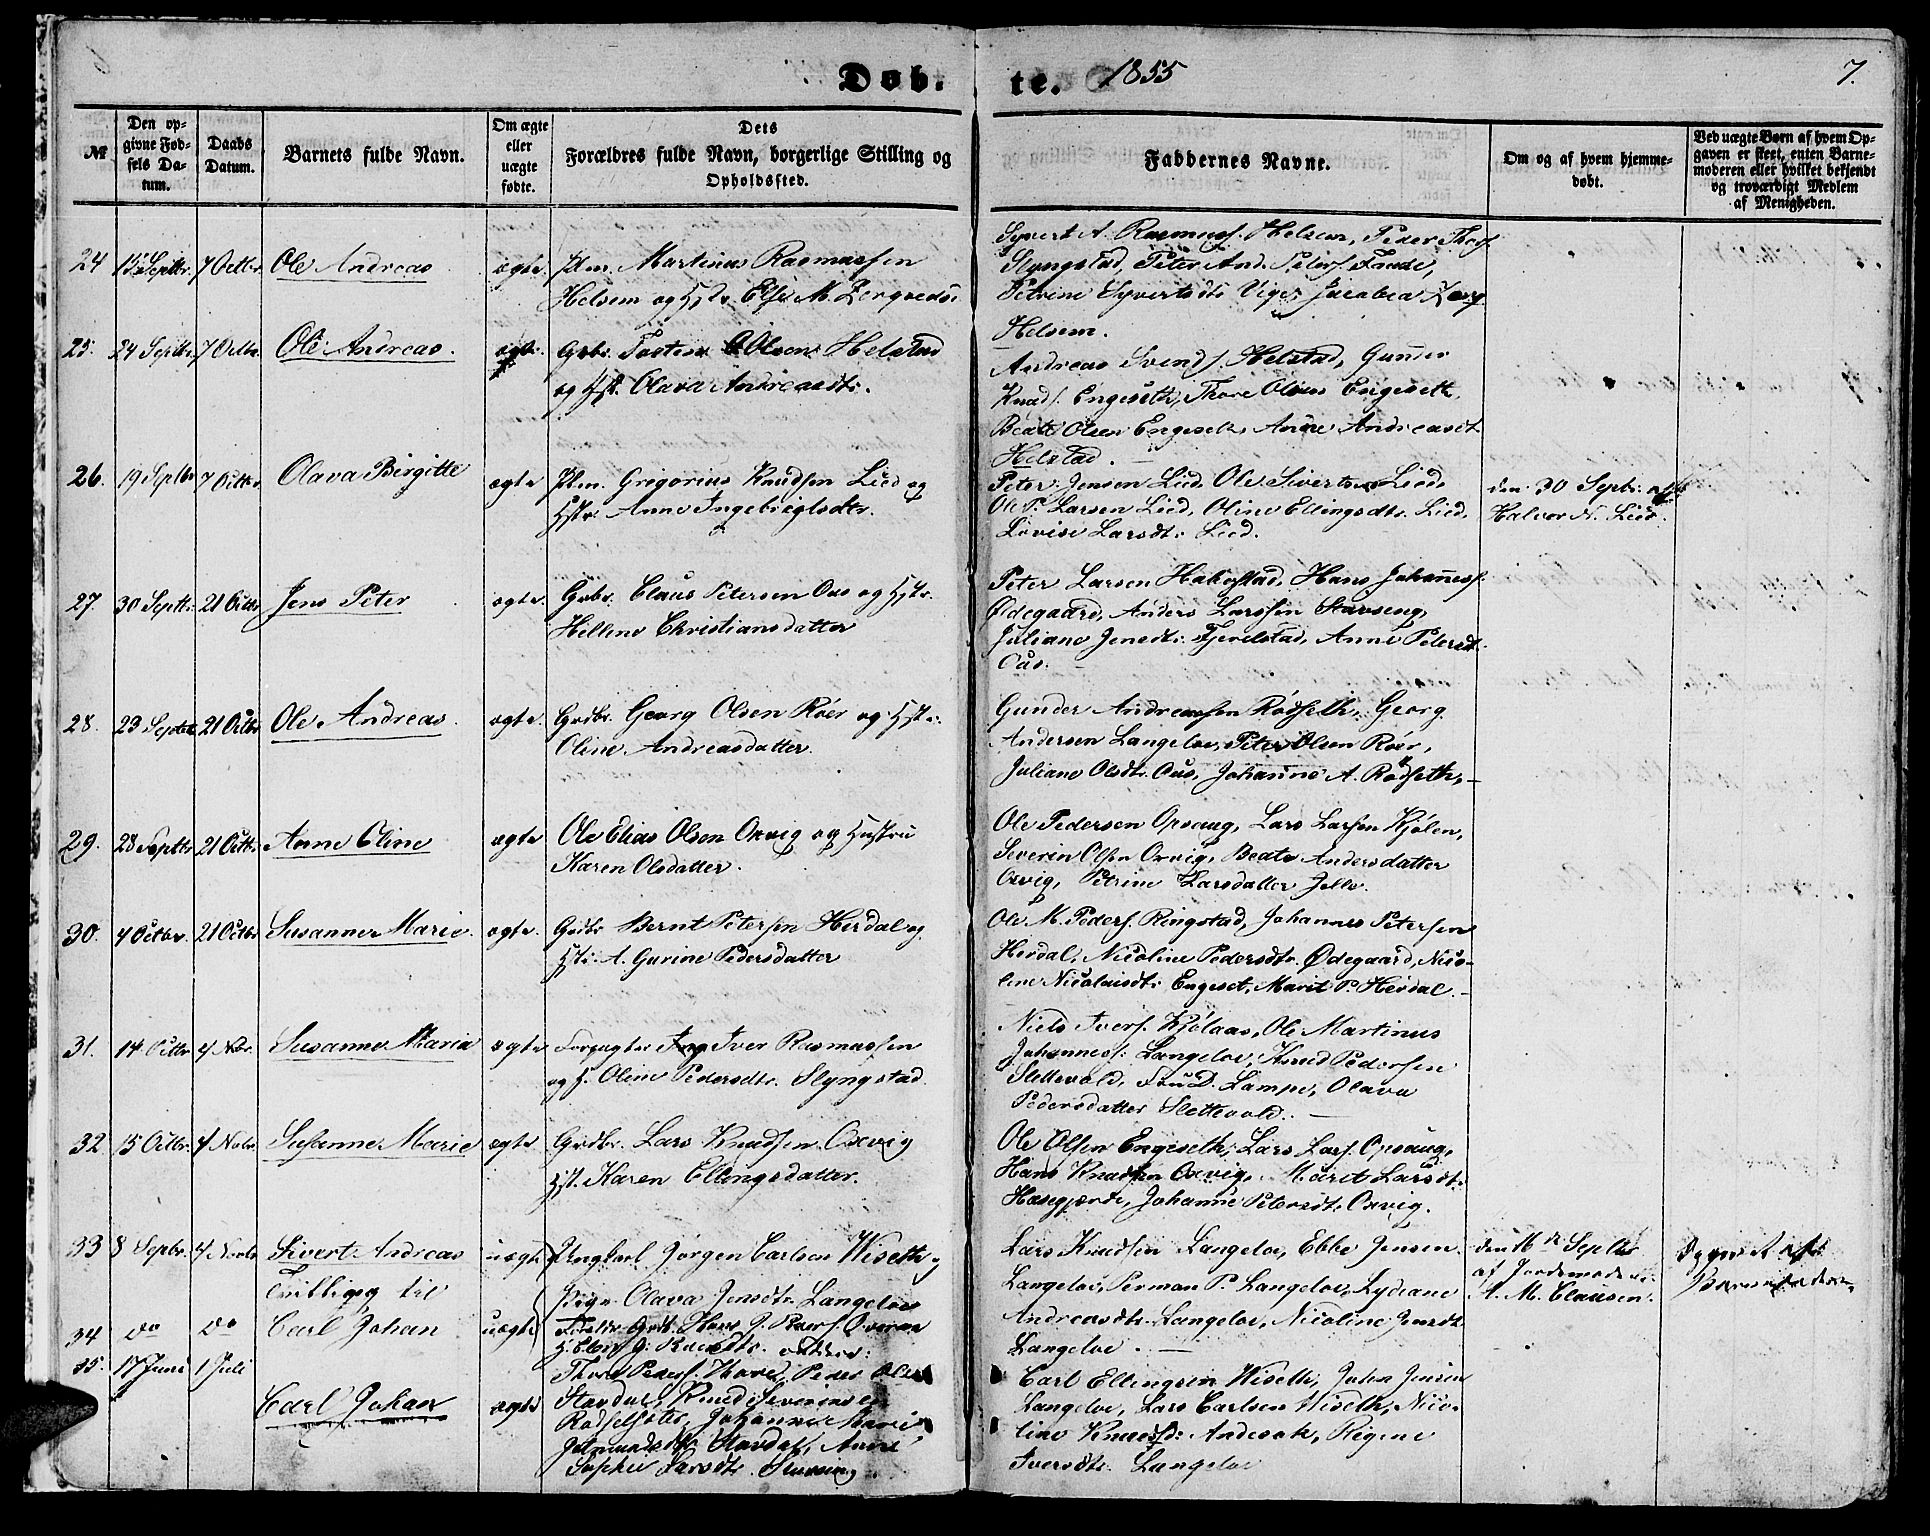 Døb- te. 1855 7.
№
Den opgivne Fødsels Datum.
Daabs Datum.
Barnets fulde Navn.
Om ægte eller uægte fødte.
Dets Forældres fulde Navn, borgerlige Stilling og Opholdssted.
Faddernes Navne.
Om og af hvem hjemmedøbt.
Ved uægte Børn af hvem Opgaven er skeet, enten Barnemoderen eller hvilket bekjendt og troværdigt Medlem af Menigheden.
24 Septbr 7 Octbr. Ole Andreas ægte Martinus Rasmussen
Helsem og Hstr. Else M.
Syvert A. Rasmuss. Helsem, Peder
Slyngstad, Peter And. Peters.
Petrine Syvertsdtr. Jacobea
Helsem.
25. 24 Septbr 7 Octbr. Ole Andreas. ægte. Grbr. Tosten Olsen Helstad
og Hst. Olava Andreasdtr.
Andreas Svends. Helstad, Gunder
Knuds. Engeseth, Thore Olsen Engeseth
Beate Olsen Engeseth, Anne Andreasdt.
Helstad. —
26. 19 Septbr 7 Octbr. Olava Birgitte ægte Plm. Gregorius Knudsen Lied og
Hstr. Anne Ingebrigtsdtr.
Peter Jensen Lied, Ole Sivertsen Lied,
Ole P. Larsen Lied, Oline Ellingsdtr. Lied,
Lovise Larsdtr. Lied.
den 30 Septbr. af
Halvor N. Lied.
27. 30 Septbr. 21 Octbr Jens Peter ægte. Grbr. Claus Petersen Ous og Hstr.
Helline Christiansdatter
Peter Larsen Hakestad, Hans Johanness.
Ødegaard, Anders Larssen Stavseng,
Juliane Jensdtr. Fjerelstad, Anne Petersdt.
Ous. —
28. 23 Septbr 21 Octbr Ole Andreas. ægte. Grdbr. Georg Olsen Röer og Hstr.
Oline Andreasdatter.
Gunder Andreassen Rödseth, Georg
Andersen Langeloe, Peter Olsen Röer,
Juliane Olsdtr. Ous, Johanne A. Rödseth. —
29. 28 Septbr 21 Octbr Anne Eline ægte Ole Elias Olsen Oxvig og Hustru
Karen Olsdatter.
Ole Pedersen Opsaug, Lars Larsen Kjølen,
Severin Olsen Oxvig, Beate Andersdatter
Oxvig, Petrine Larsdatter
30. 4 Octbr. 21 Octbr Susanne Marie. ægte. Grdbr Bernt Petersen Herdal og
Hstr. A. Gurine Pedersdatter
Ole M. Peders. Ringstad, Johannes Petersen
Herdal, Nicoline Pedersdtr. Ødegaard, Nico-
line Nicolaisdtr. Engeset, Marit P. Herdal. —
31. 14 Octbr 4 Nbr. Susanne Maria ægte Forpagter Iver Rasmussen
og H. Oline Pedersdtr. Slyngstad.
Niels Ivers. Kjölaas, Ole Martinus
Johanness. Langeloe, Knud Pedersen
Slettevold, Fru D. Lampe, Olava
Pedersdatter Slettevold. —
32 15 Octbr. 4 Novbr. Susanne Marie ægte Grdbr. Lars Knudsen Oxvig
Hst. Karen Ellingsdatter.
Ole Olsen Engeseth, Lars Lars. Opsaug,
Hans Knudsen Oxvig, Marit Larsdt.
Hasegjerde, Johanne Petersdt. Oxvig.
33 8 Septbr. 4 Novbr Sivert Andreas uægte Ungkarl Jørgen Carlsen Wiseth og
Tvilling til Pige Olava Jensdtr. Langeloe
Lars Knudsen Langeloe, Ebbe Jensen
Langeloe, Perman P. Langeloe, Lydiane
Andreasdtr. Langeloe, Nicoline Jensdt.
Langeloe. —
den 16de Septbr
af Jordemoder
A. M. Clausen.
Opgivet af
Barnemoderen
34 do do Carl Johan uægte
Carl Ellingsen Wiseth, John Jensen
Langeloe, Lars Carlsen Wiseth, Nico-
line Knudsd: Andesak, Regine
Iversdtr. Langeloe
35. 17 Juni 1 Juli Carl Johan ægte
Stavdal, Knud Severinsen
Johanne
Stavdal, Anne
Sophie Larsdtr.